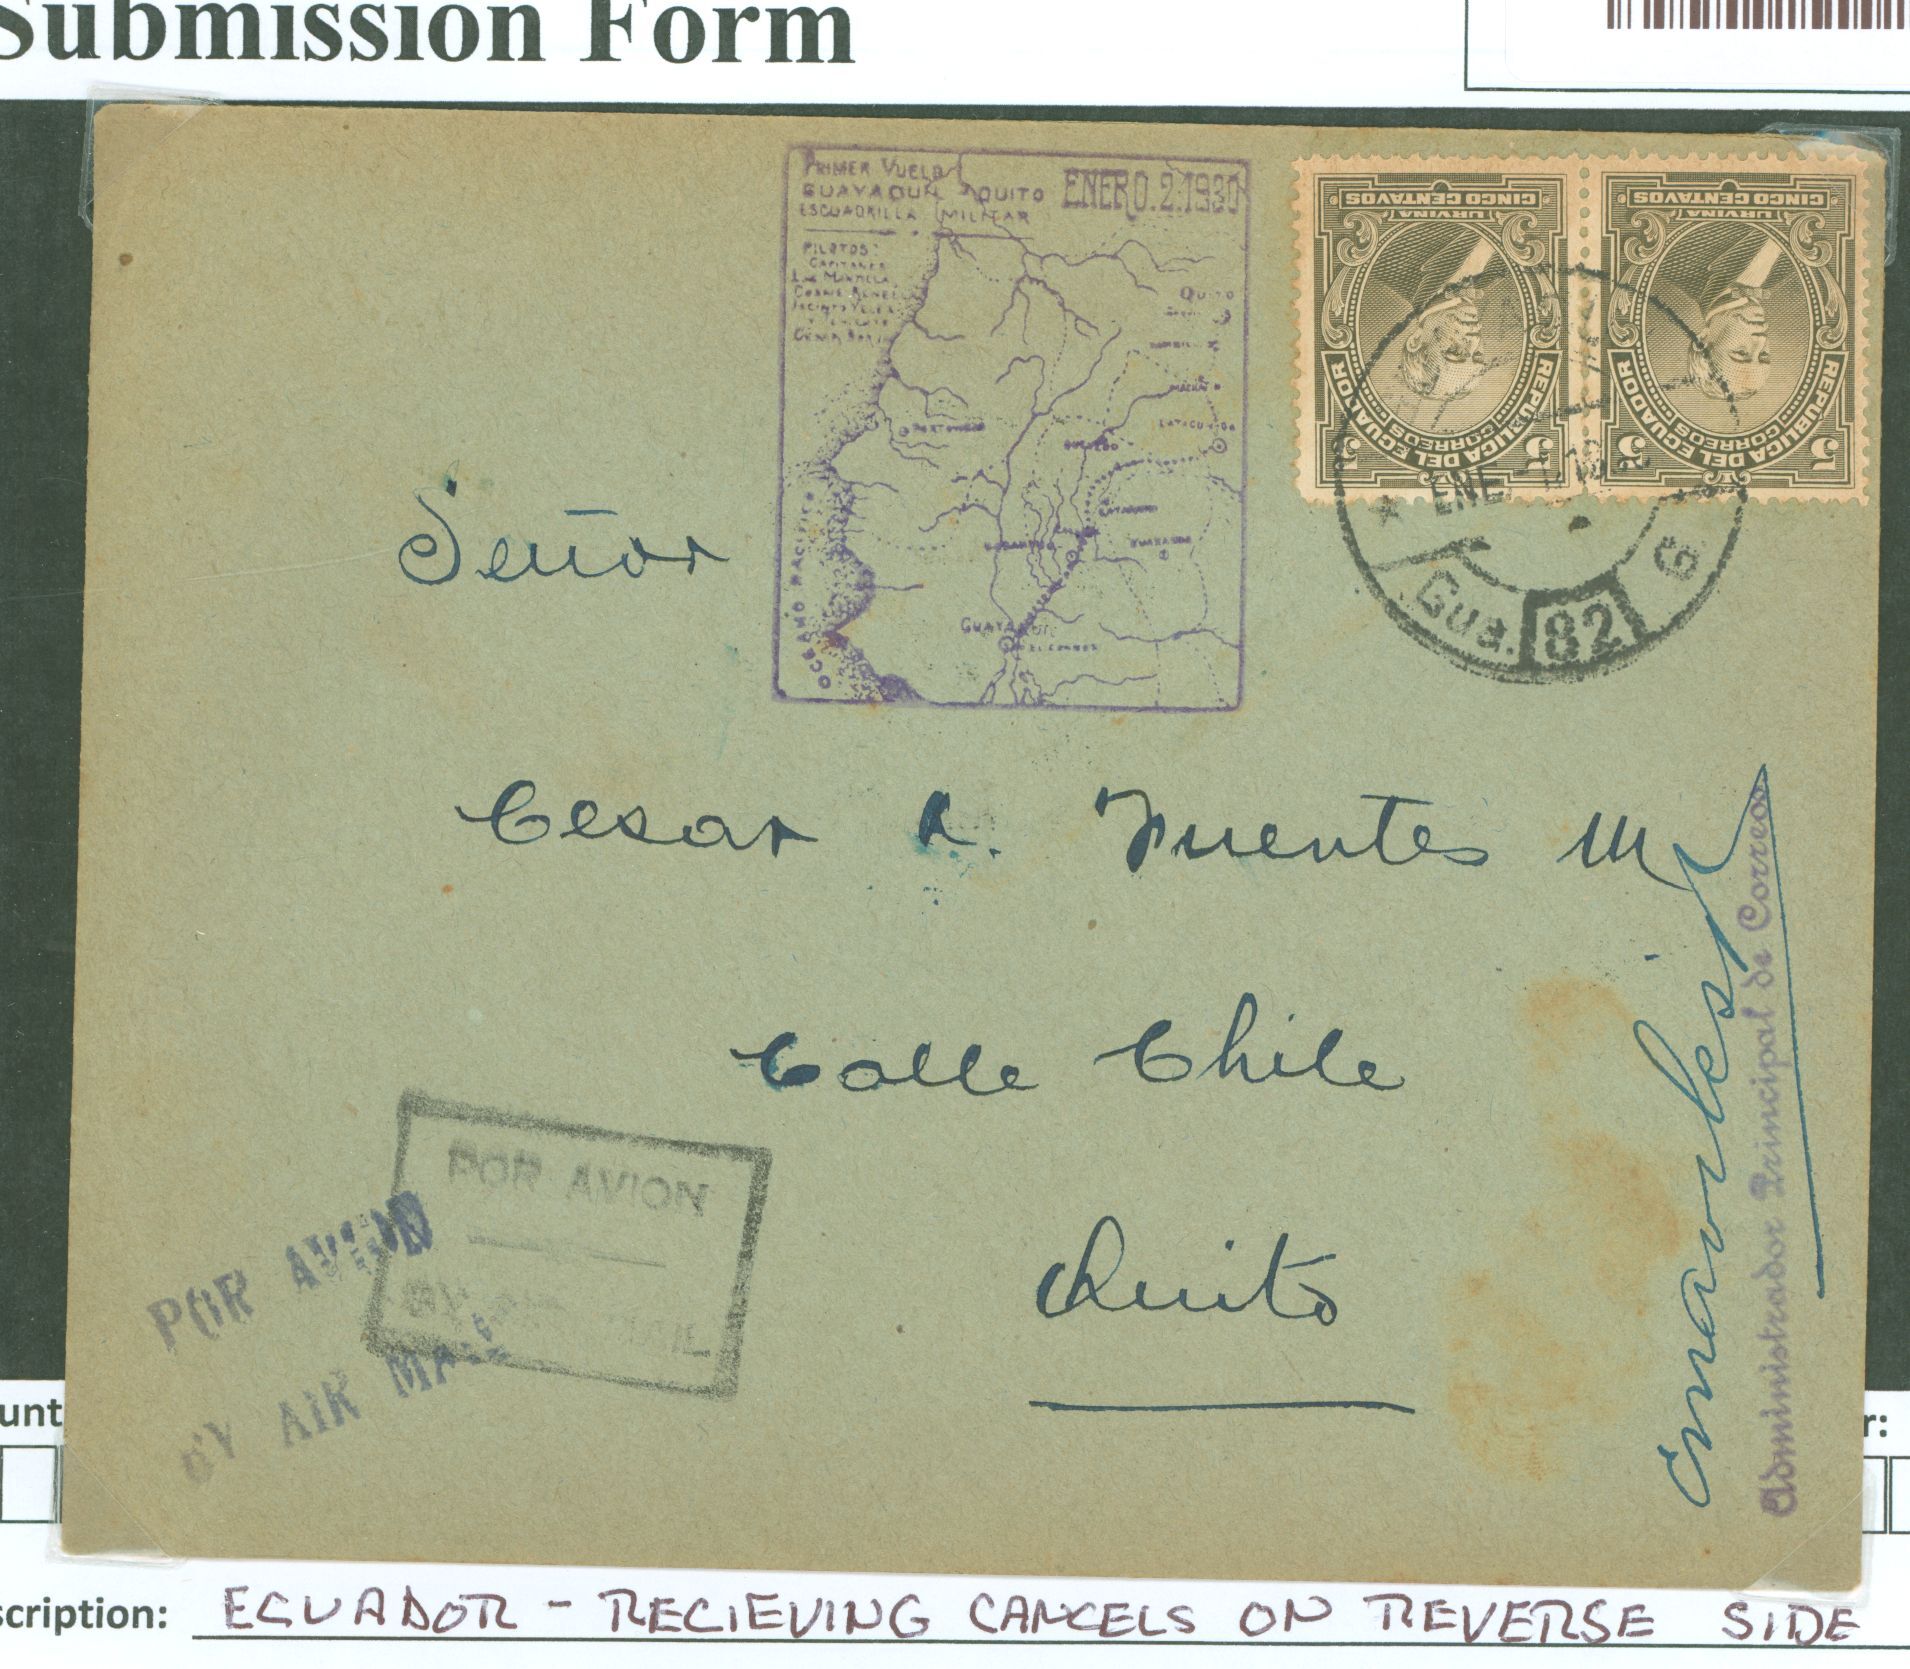 Submission Form
PRIMER VUELO
GUAYAQUIL QUITO
ESCUADRILLA MILITAR
ENERO.2.1930
PILOTOS:
CAPITANES
QUITO
LATACUNGA
QUEVEDO
GUARANDA
OCEANO PACIFICO
GUAYAQUIL
CINCO CENTAVOS
URVINA
REPUBLICA DEL ECUADOR
CORREOS
5 5
CINCO CENTAVOS
URVINA
REPUBLICA DEL ECUADOR
CORREOS
5 5
ENE
Gua. 82 G.
Señor
Cesar A. Fuentes M
Calle Chile
Quito
POR AVION
POR AVION
BY AIR MAIL
Administrador Principal de Correos
unt
r:
scription: ECUADOR - RECIEVING CANCELS ON REVERSE SIDE